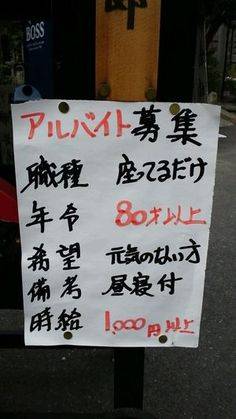 BOSS
アルバイト募集
職種 座ってるだけ
年令 80才以上
希望 元気のない方
備考 昼寝付
時給 1,000円以上